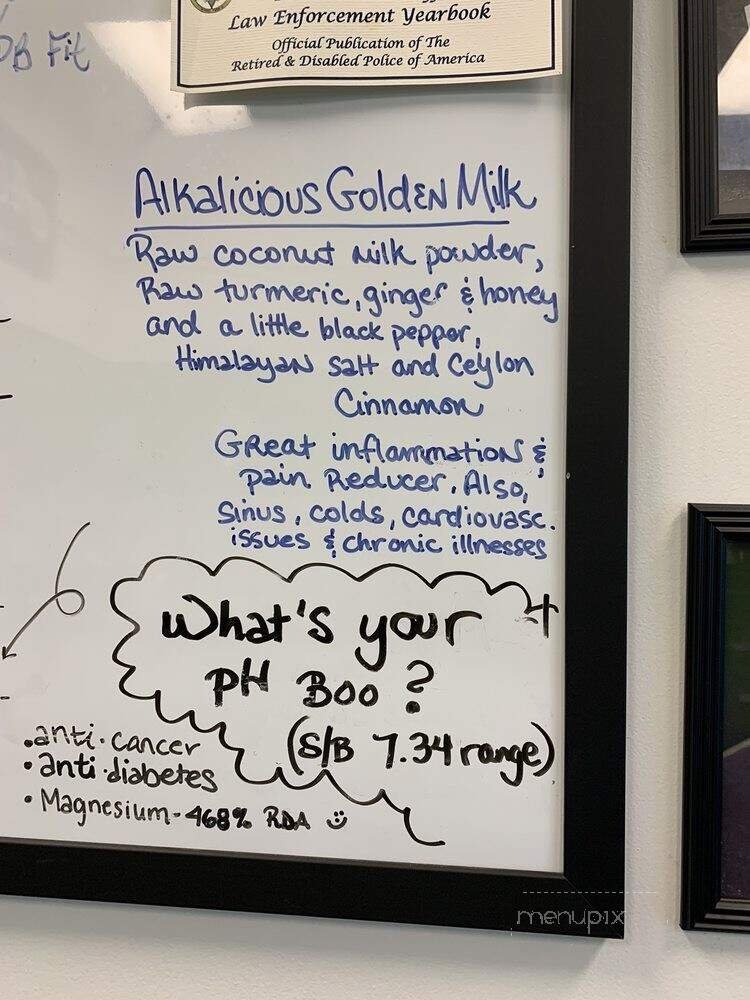 Law Enforcement Yearbook
Official Publication of The
Retired & Disabled Police of America
Fit
Alkalicious Golden Milk
Raw coconut milk powder,
Raw turmeric, ginger & honey
and a little black pepper,
Himalayan salt and Ceylon
Cinnamon
Great inflammation &
pain Reducer. Also,
Sinus, colds, cardiovasc.
issues & chronic illnesses
What's your
pH Boo?
(S/B 7.34 range)
• anti-cancer
• anti-diabetes
• Magnesium - 468% RDA
menupix